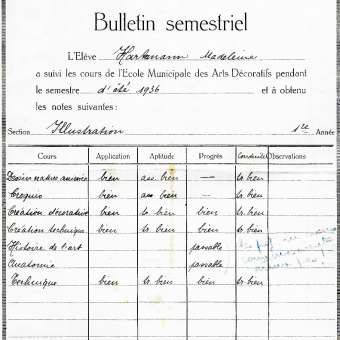 Bulletin semestriel
L'Elève Hartmann Madeleine
a suivi les cours de l'Ecole Municipale des Arts Décoratifs pendant
le semestre d'été 1936 et a obtenu
les notes suivantes:
Section Illustration 1ère Année
Cours Application Aptitude Progrès Conduite Observations
Dessin nature animée bien ass. bien — tr. bien
Croquis bien ass. bien — tr. bien
Création décorative bien tr. bien bien tr. bien
Création technique bien tr. bien bien tr. bien
Histoire de l'art passable
Anatomie passable
Technique bien tr. bien bien tr. bien